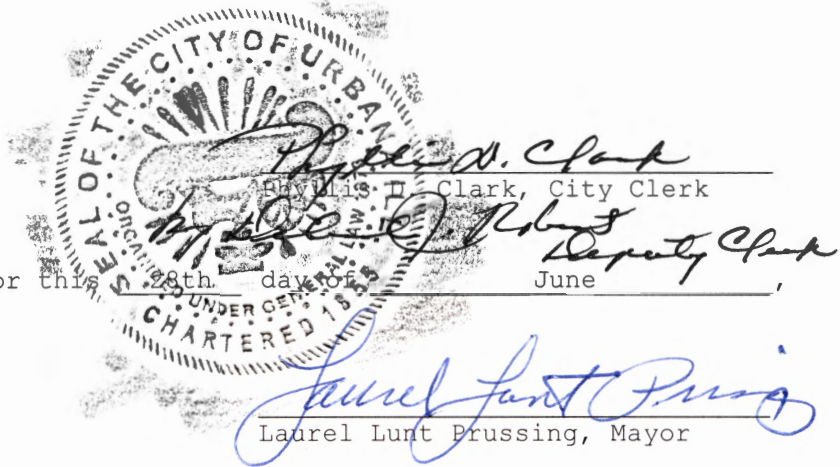 SEAL OF THE CITY OF URBANA
ORGANIZED UNDER GENERAL LAW
CHARTERED 1855
Phyllis D. Clark
Phyllis D. Clark, City Clerk
by J. Roberts
Deputy Clerk
this 28th day of June,
Laurel Lunt Prussing
Laurel Lunt Prussing, Mayor